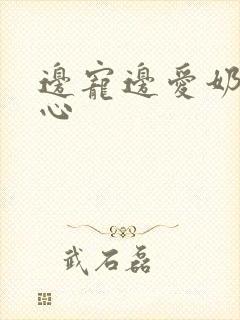 邊寵邊愛奶
心
武石磊